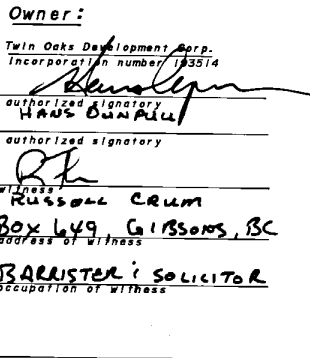 Owner:
Twin Oaks Development Corp.
Incorporation number 193514
authorized signatory
HANS
authorized signatory
witness
RUSSELL CRUM
BOX 649, GIBSONS, BC
address of witness
BARRISTER & SOLICITOR
occupation of witness